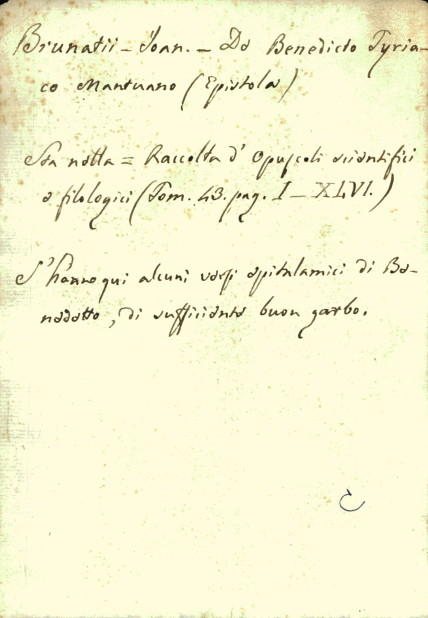 Brunatii - Joan. - De Benedicto Tyria-
co Mantuano (Epistola)
Sta nella = Raccolta d' Opuscoli scientifici
e filologici (Tom. 43. pag. I - XLVI.)
S' hanno qui alcuni versi epitalamici di Be-
nedetto, di sufficiente buon garbo.